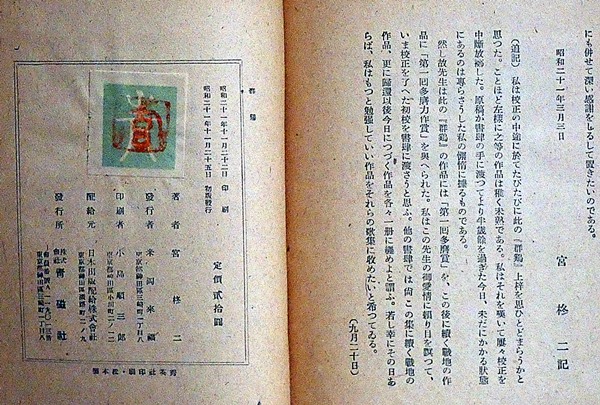 にも併せて深い感謝をしるして置きたいのである。
昭和二十一年三月三日
宮柊二記
（追記）　私は校正の中途に於てたびたびに此の『群鷄』上梓を思ひとどまらうかと
思つた。ことほど左様に之等の作品は稚く未熟である。私はそれを嘆いて屢々校正を
中斷放擲した。原稿が書肆の手に渡つてより半歳餘を過ぎた今日、未だにかかる狀態
にあるのは專らさうした私の懶惰に據るものである。
然し故先生は此の『群鷄』の作品には「第一回多磨賞」を、この後に續く戰地の作
品に「第一回多磨力作賞」を與へられた。私はこの先生の御愛情に賴り目を瞑つて、
いま校正を了へた初校を書肆に渡さうと思ふ。他の書肆では尙この集に續く戰地の
作品、更に歸還以後今日につづく作品を各々一册に纏めよと謂ふ。若し幸にその日あ
らば、私はもつと勉强していい作品をそれらの歌集に收めたいと希つてゐる。
（九月二十日）
群鷄
昭和二十一年十一月二十二日　印刷
昭和二十一年十一月二十五日　初版發行
定價貳拾圓
著者　宮柊二
發行者　米岡來福
東京都神田區三崎町二ノ八
印刷者　小島順三郎
配給元　日本出版配給株式會社
東京都神田區淡路町二ノ九
發行所　株式會社　靑磁社
東京都神田區三崎町二丁目八